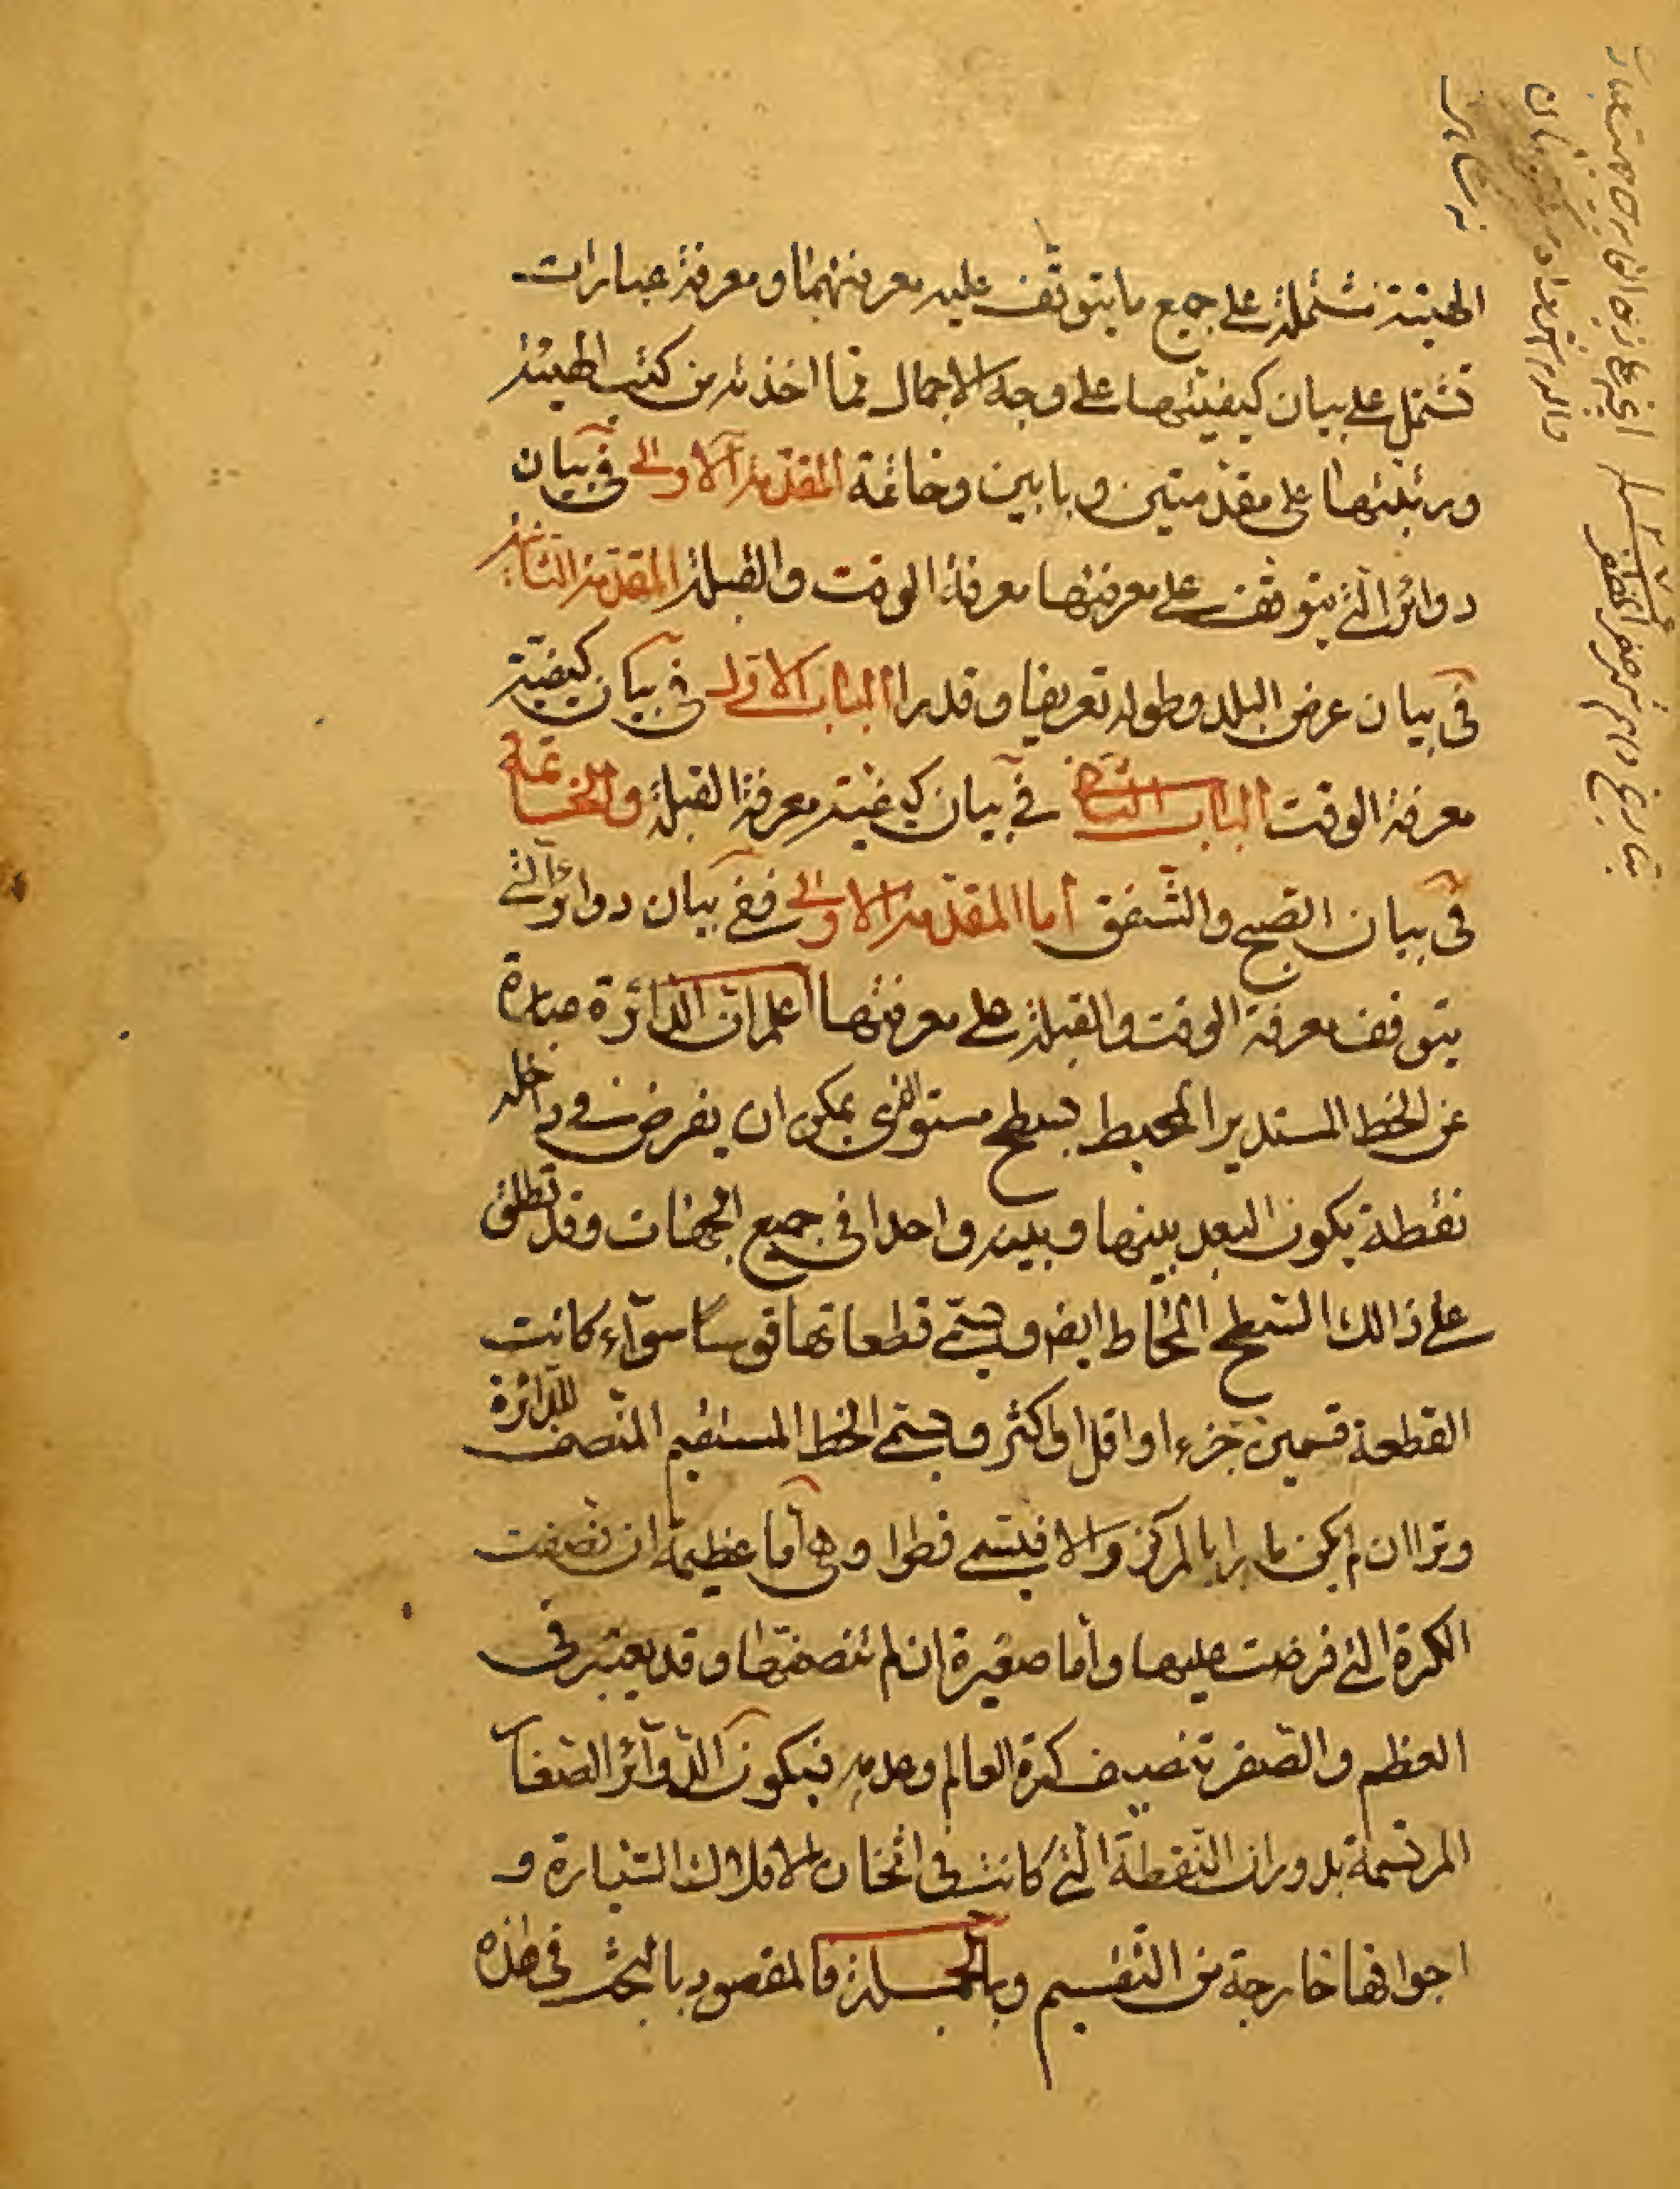 الهيئة مشتملة على جميع ما يتوقف عليه معرفتهما ومعرفة عبارات
تشتمل على بيان كيفيتها على وجه الاجمال فما اخذته من كتب الهيئة
ورتبتها على مقدمتين وبابين وخاتمة المقدمة الاولى في بيان
دوائر التي يتوقف على معرفتها معرفة الوقت والقبلة المقدمة الثانية
في بيان عرض البلد وطوله تعريفا وقدرا الباب الاول في بيان كيفية
معرفة الوقت الباب الثاني في بيان كيفية معرفة القبلة والخاتمة
في بيان الصبح والشفق أما المقدمة الاولى ففي بيان دوائر التي
يتوقف معرفة الوقت والقبلة على معرفتها اعلم ان الدائرة عبارة
عن الخط المستدير المحيط بسطح مستو الذي يمكن ان يفرض في داخله
نقطة يكون البعد بينها وبينه واحدا في جميع الجهات وقد تطلق
على ذالك السطح المحاط ايضا ويسمى قطعاتها قوسا سوآء كانت
القطعة قسمين جزء او اقل او اكثر ويسمى الخط المستقيم المنصف للدائرة
وترا ان لم يكن مارا بالمركز والا فيسمى قطرا وهي أما عظيمة ان نصفت
الكرة التي فرضت عليها وأما صغيرة ان لم تنصفها وقد يعتبر في
العظم والصغر تنصيف كرة العالم وعدمه فيكون الدوآئر الصغآ
المرتسمة بدوران النقطة التي كانت في اثخان الافلاك السيارة و
اجوافها خارجة من التقسيم وبالجملة فالمقصود بالبحث في هذه